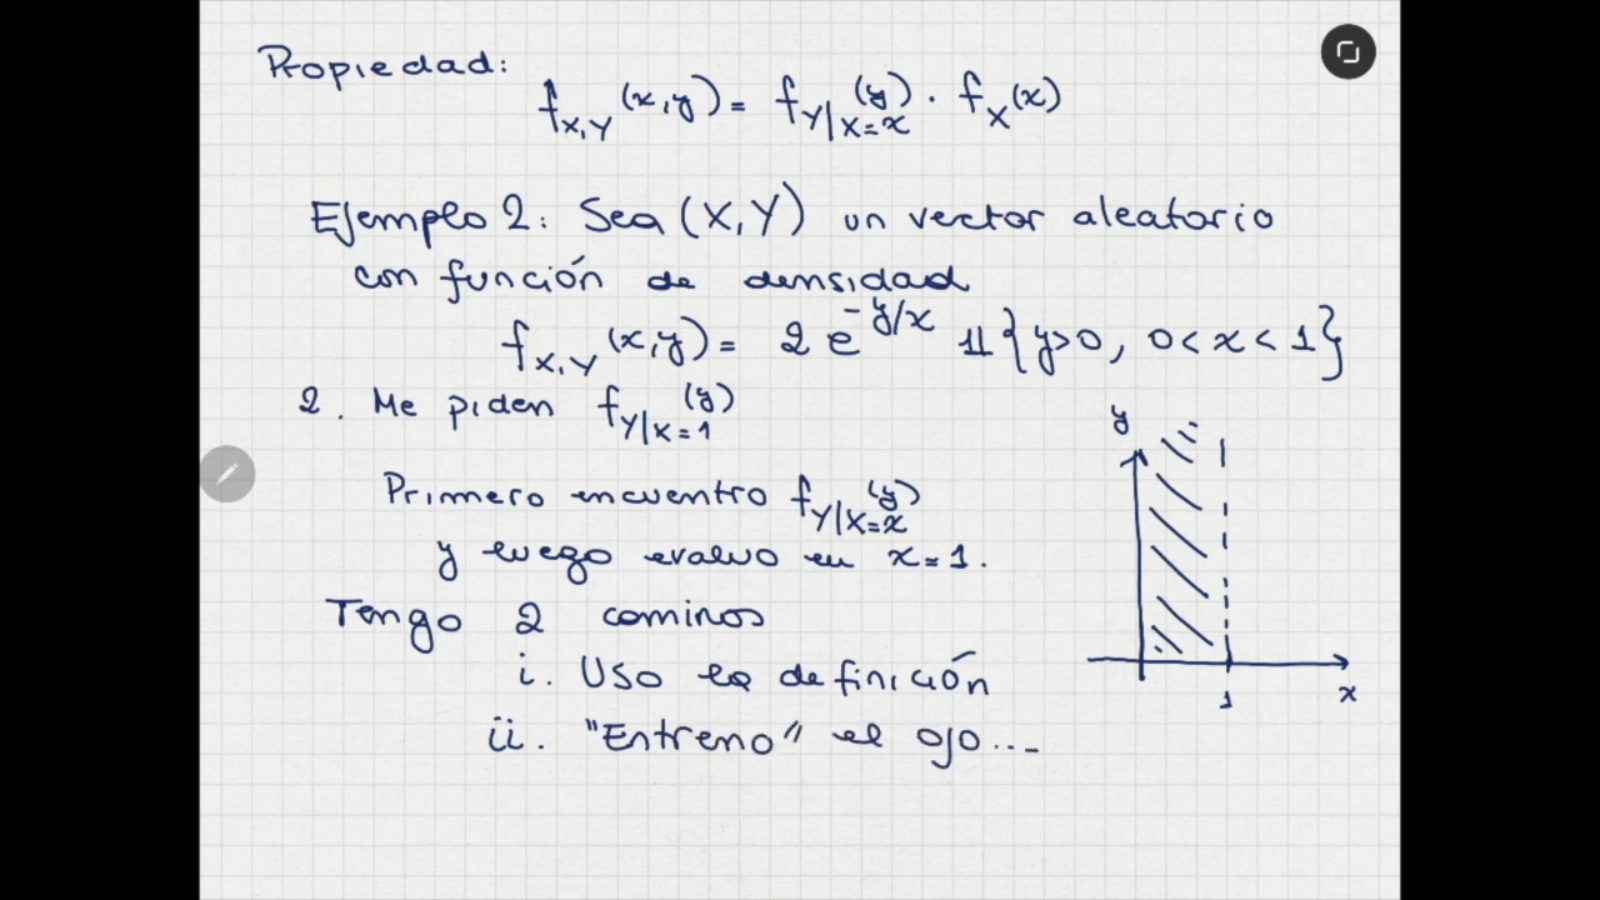 Propiedad:
f_{X,Y}(x,y) = f_{Y|X=x}(y) · f_X(x)
Ejemplo 2: Sea (X,Y) un vector aleatorio
con función de densidad
f_{X,Y}(x,y) = 2 e^{-y/x} 𝟙{y>0, 0<x<1}
2. Me piden f_{Y|X=1}(y)
Primero encuentro f_{Y|X=x}(y)
y luego evaluo en x=1.
Tengo 2 caminos
i. Uso la definición
ii. "Entreno" el ojo...
y
1
x